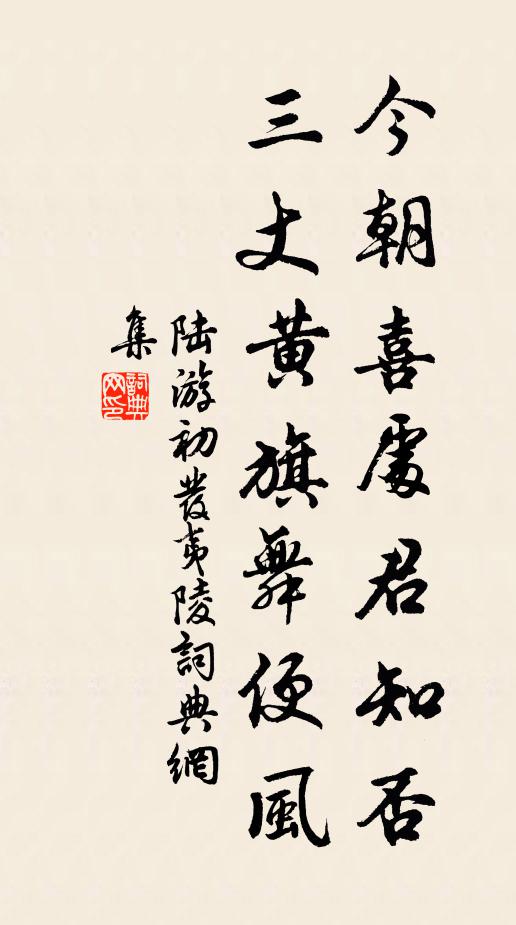 今朝喜處君知否
三丈黃旗舞便風
陆游初發夷陵詞典網
集
詞典网印